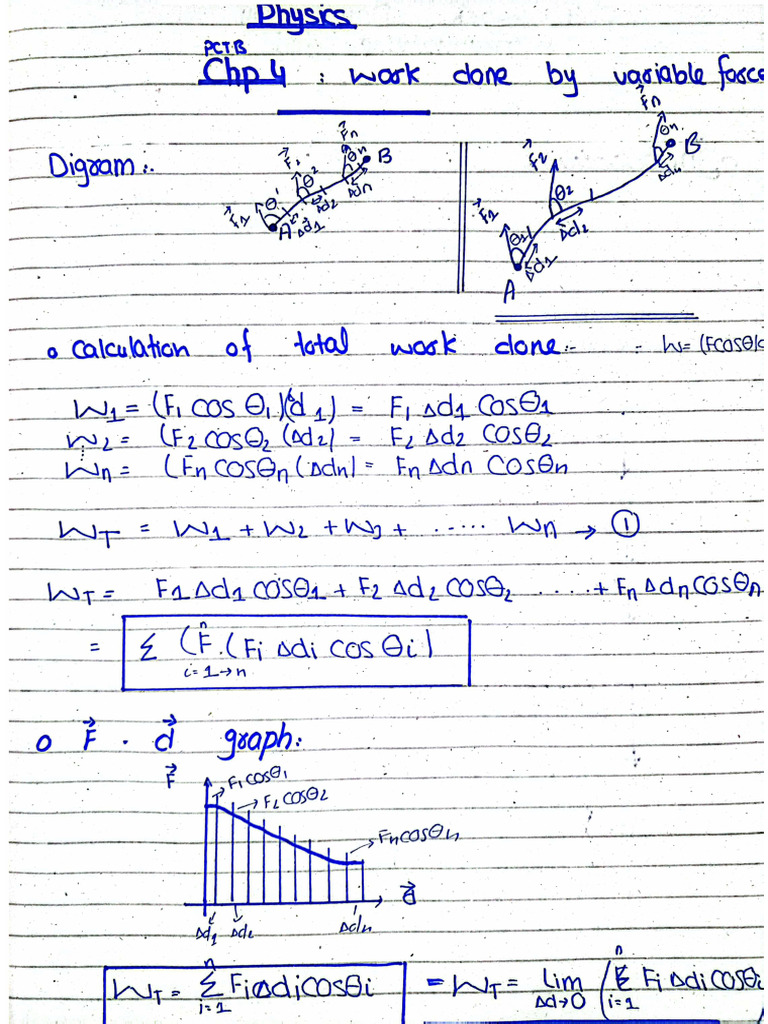 Physics
PCTB
Chp 4 : work done by variable force
Digram:.
F⃗1 θ1 F⃗2 θ2 F⃗n θn B
A Δd⃗1 Δd2 Δdn
F⃗1 θ1 F⃗2 θ2 F⃗n θn B
A Δd1 Δd2 Δdn
o Calculation of total work done:- = W= (Fcosθ)d
W1 = (F1 cos θ1)(d1) = F1 Δd1 cosθ1
W2 = (F2 cosθ2 (Δd2) = F2 Δd2 cosθ2
Wn = (Fn cosθn (Δdn) = Fn Δdn cosθn
WT = W1 + W2 + W3 + ...... Wn → ①
WT = F1Δd1cosθ1 + F2 Δd2cosθ2 ...... + FnΔdncosθn
= Σ (F. (Fi Δdi cos θi)
n
i=1→n
o F⃗ . d⃗ graph:
F⃗ F1cosθ1
F2cosθ2
Fncosθn
d⃗
Δd1 Δd2 Δdn
WT = Σ FiΔdicosθi = WT = lim (Σ Fi Δdi cosθi
n i=1 Δd→0 n i=1